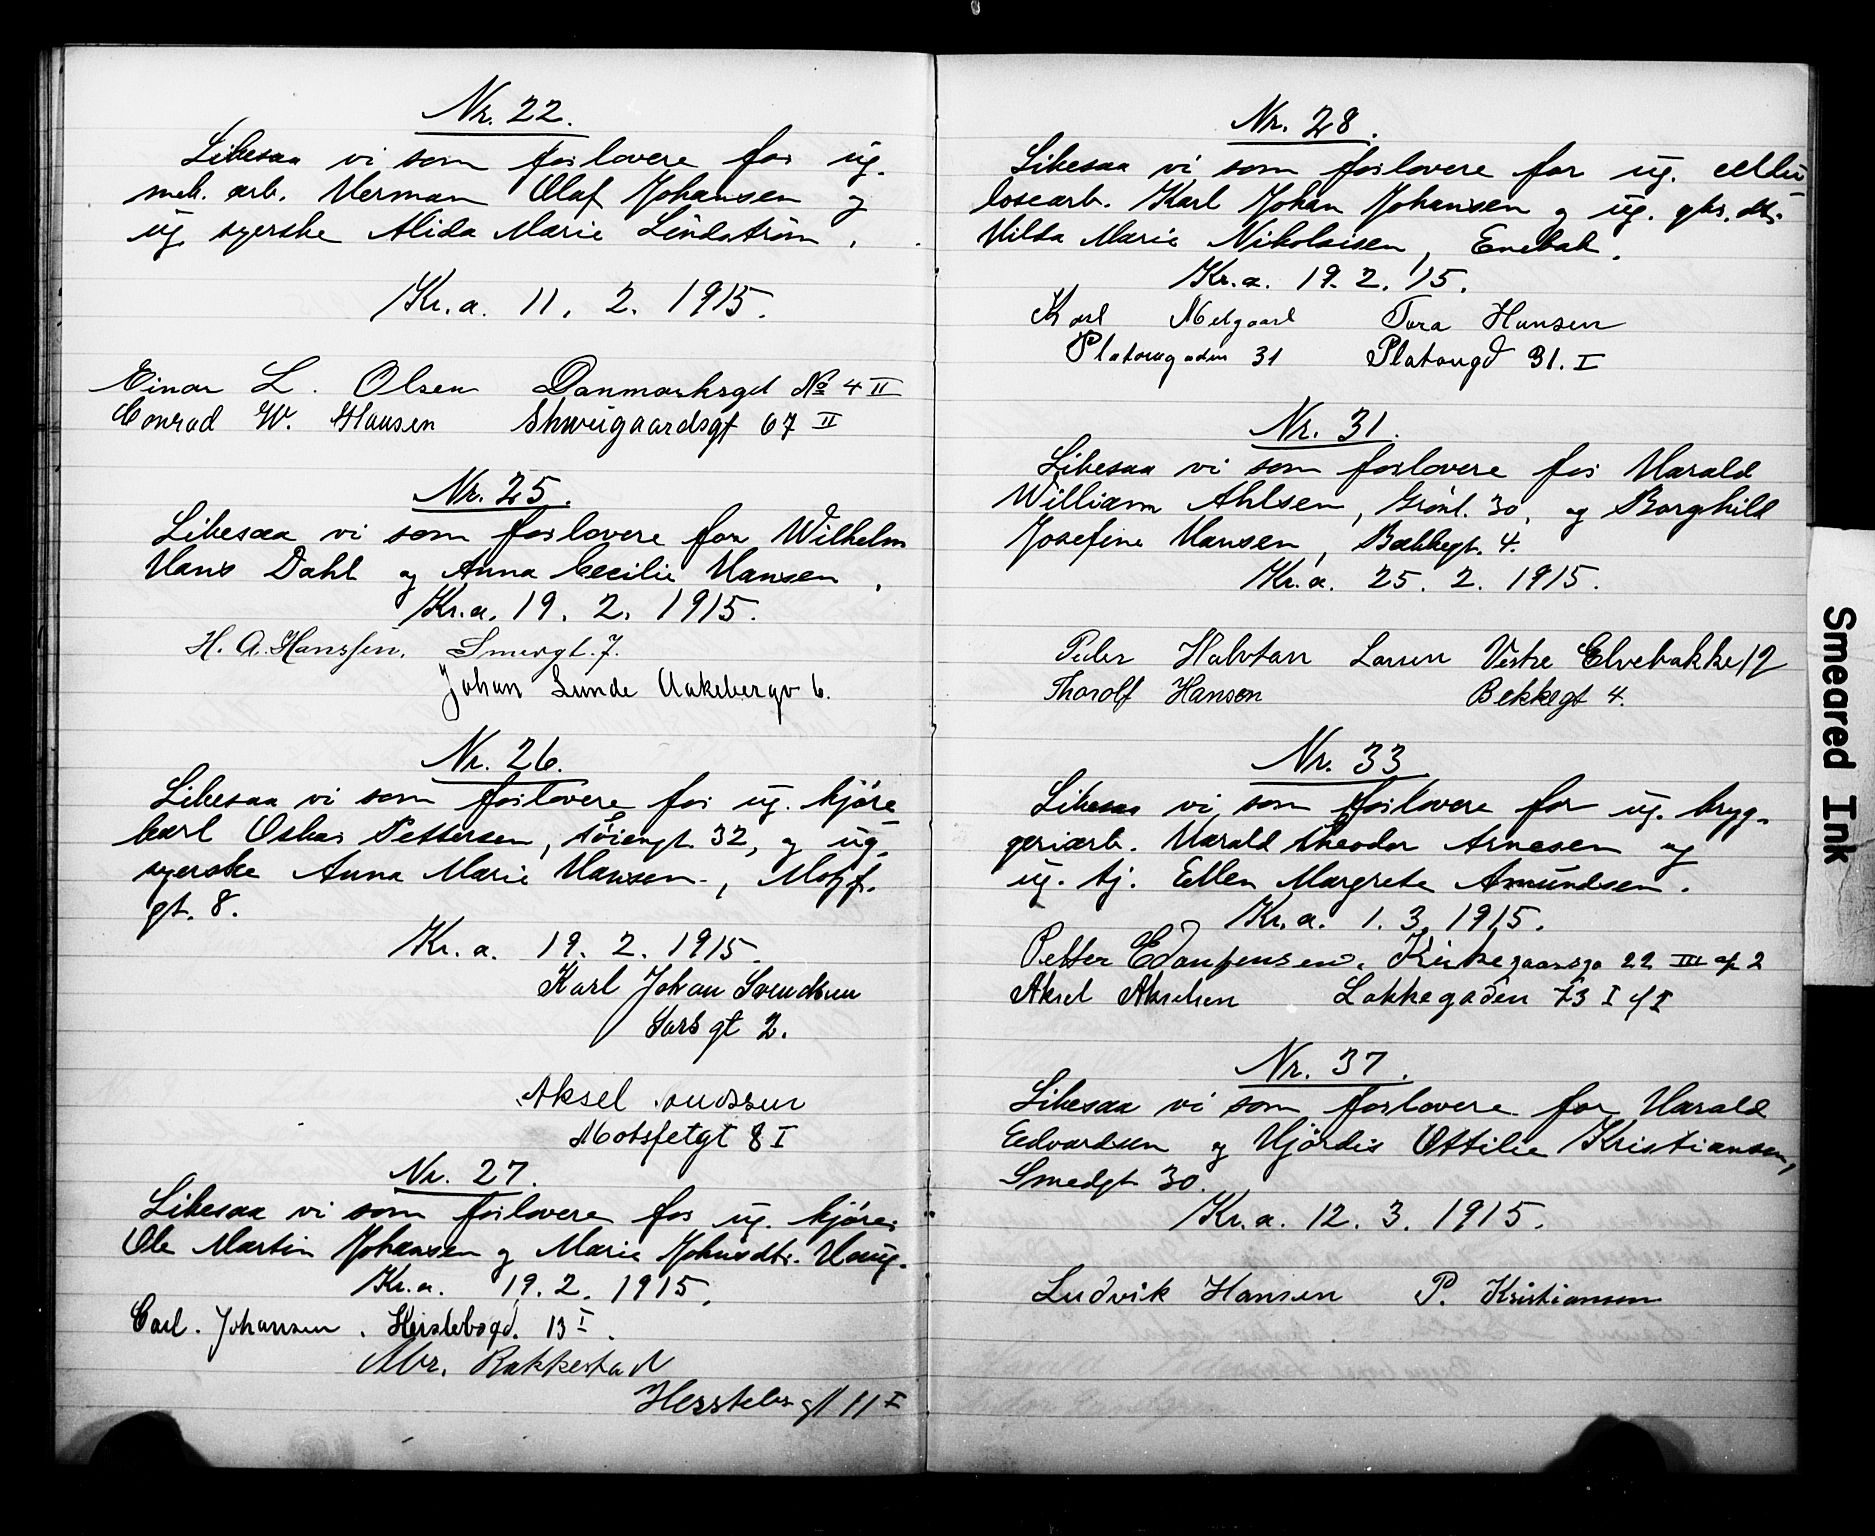 Nr. 22.
Likesaa vi som forlovere for ug.
mek. arb. Herman Olaf Johansen og
ug. syerske Alida Marie Lindstrøm.
Kr.a. 11. 2. 1915.
Einar L. Olsen Danmarksgd No 4 II
Conrad W. Hansen Shweigaardsgt 67 II
Nr. 25.
Likesaa vi som forlovere for Wilhelm
Hans Dahl og Anna Cecilie Hansen.
Kr.a. 19. 2. 1915.
H. A. Hanssen. Smergt. 7.
Johan Lunde Aakebergv 6.
Nr. 26.
Likesaa vi som forlovere for ug. kjøre
karl Oskar Pettersen, Tøiengt. 32, og ug.
syerske Anna Marie Hansen, Motzf.
gt. 8.
Kr.a. 19. 2. 1915.
Karl Johan Svendsen
Sars gt 2.
Aksel
Motsfetgt 8 I
Nr. 27.
Likesaa vi som forlovere for ug. kjører
Ole Martin Johansen og Marie Johnsdtr. Haug.
Kr.a. 19. 2. 1915.
Carl. Johansen. Herslebsgd. 13 I.
Mbr. Rakkestad
Herslebsgt 11 I
Nr. 28.
Likesaa vi som forlovere for ug. cellu
losearb. Karl Johan Johansen og ug. gbr. dtr.
Hilda Marie Nikolaisen, Enebak.
Kr.a. 19. 2. 15.
Karl Melgaard Tora Hansen
Platougaden 31 Platougd 31. I
Nr. 31.
Likesaa vi som forlovere for Harald
William Ahlsen, Grønl. 30, og Borghild
Josefine Hansen, Bækkegt. 4.
Kr.a. 25. 2. 1915.
Peder Halvdan Larsen Vestre Elvebakke 12
Thorolf Hansen Bekkegt 4.
Nr. 33
Likesaa vi som forlovere for ug. bryg-
geriarb. Harald Theodor Arnesen og
ug. tj. Ellen Margrete Amundsen.
Kr.a. 1. 3. 1915.
Petter 22 III op 2
Aksel Akselsen Lakkegaden 73 I
Nr. 37.
Likesaa vi som forlovere for Harald
Edvardsen og Hjørdis Ottilie Kristiansen,
Smedgt 30.
Kr.a. 12. 3. 1915.
Ludvik Hansen P. Kristiansen
Smeared Ink